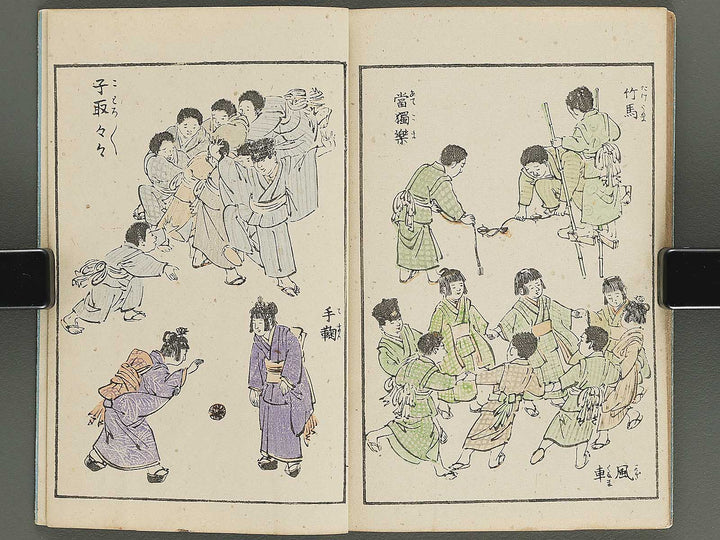 竹馬
たけうま
當獨樂
あてこま
風車
かざくるま
子取々々
ことろ〱
手鞠
てまり